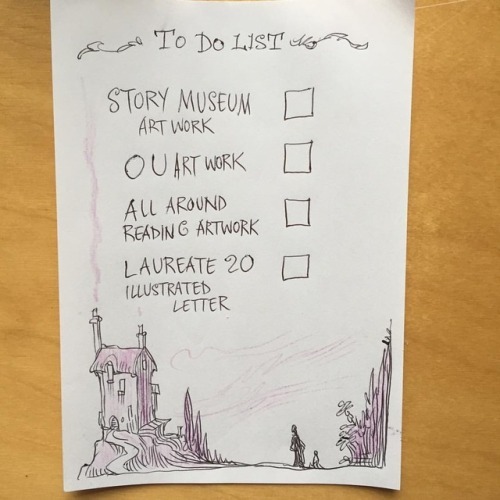 TO DO LIST
STORY MUSEUM
ART WORK
OU ART WORK
ALL AROUND
READING ARTWORK
LAUREATE 20
ILLUSTRATED
LETTER